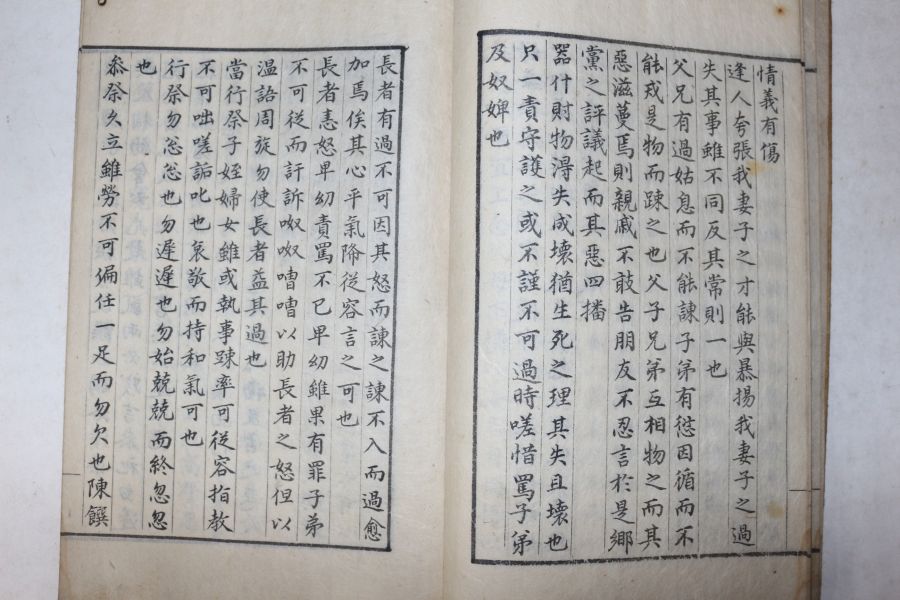 情義有傷
逢人夸張我妻子之才能與暴揚我妻子之過
失其事雖不同反其常則一也
父兄有過姑息而不能諫子弟有愆因循而不
能戒是物而踈之也父子兄弟互相物之而其
惡滋蔓焉則親戚不敢告朋友不忍言於是鄉
黨之評議起而其惡四播
器什財物淂失成壞猶生死之理其失且壞也
只一責守護之或不謹不可過時嗟惜罵子弟
及奴婢也
長者有過不可因其怒而諫之諫不入而過愈
加焉俟其心平氣降從容言之可也
長者恚怒卑幼責罵不已卑幼雖果有罪子弟
不可從而訐訴呶呶嘈嘈以助長者之怒但以
温語周旋勿使長者益其過也
當行祭子姪婦女雖或執事踈率可從容指教
不可咄嗟詬叱也哀敬而持和氣可也
行祭勿忩忩也勿遲遲也勿始兢兢而終忽忽
也
叅祭久立雖勞不可偏任一足而勿欠也陳饌